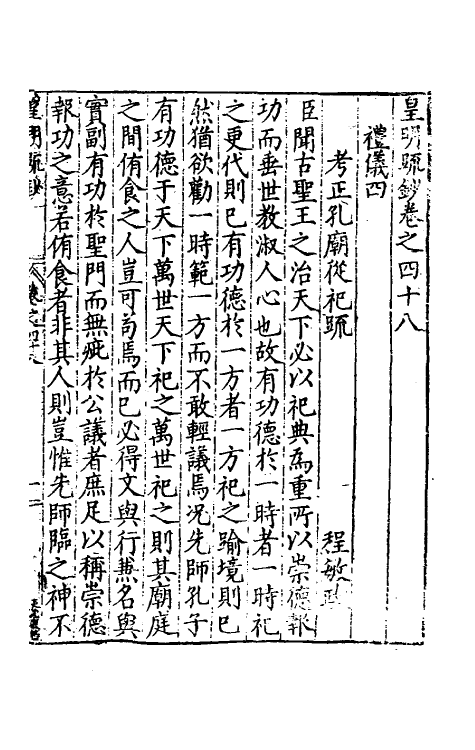 皇明疏鈔卷之四十八
禮儀四
考正孔廟從祀疏
程敏政
臣聞古聖王之治天下必以祀典為重所以崇德報
功而垂世教淑人心也故有功德於一時者一時祀
之更代則已有功德於一方者一方祀之踰境則已
然猶欲勸一時範一方而不敢輕議焉况先師孔子
有功德于天下萬世天下祀之萬世祀之則其廟庭
之間侑食之人豈可苟焉而已必得文與行兼名與
實副有功於聖門而無疵於公議者庶足以稱崇德
報功之意若侑食者非其人則豈惟先師臨之神不
皇明疏鈔
卷之四十八
一